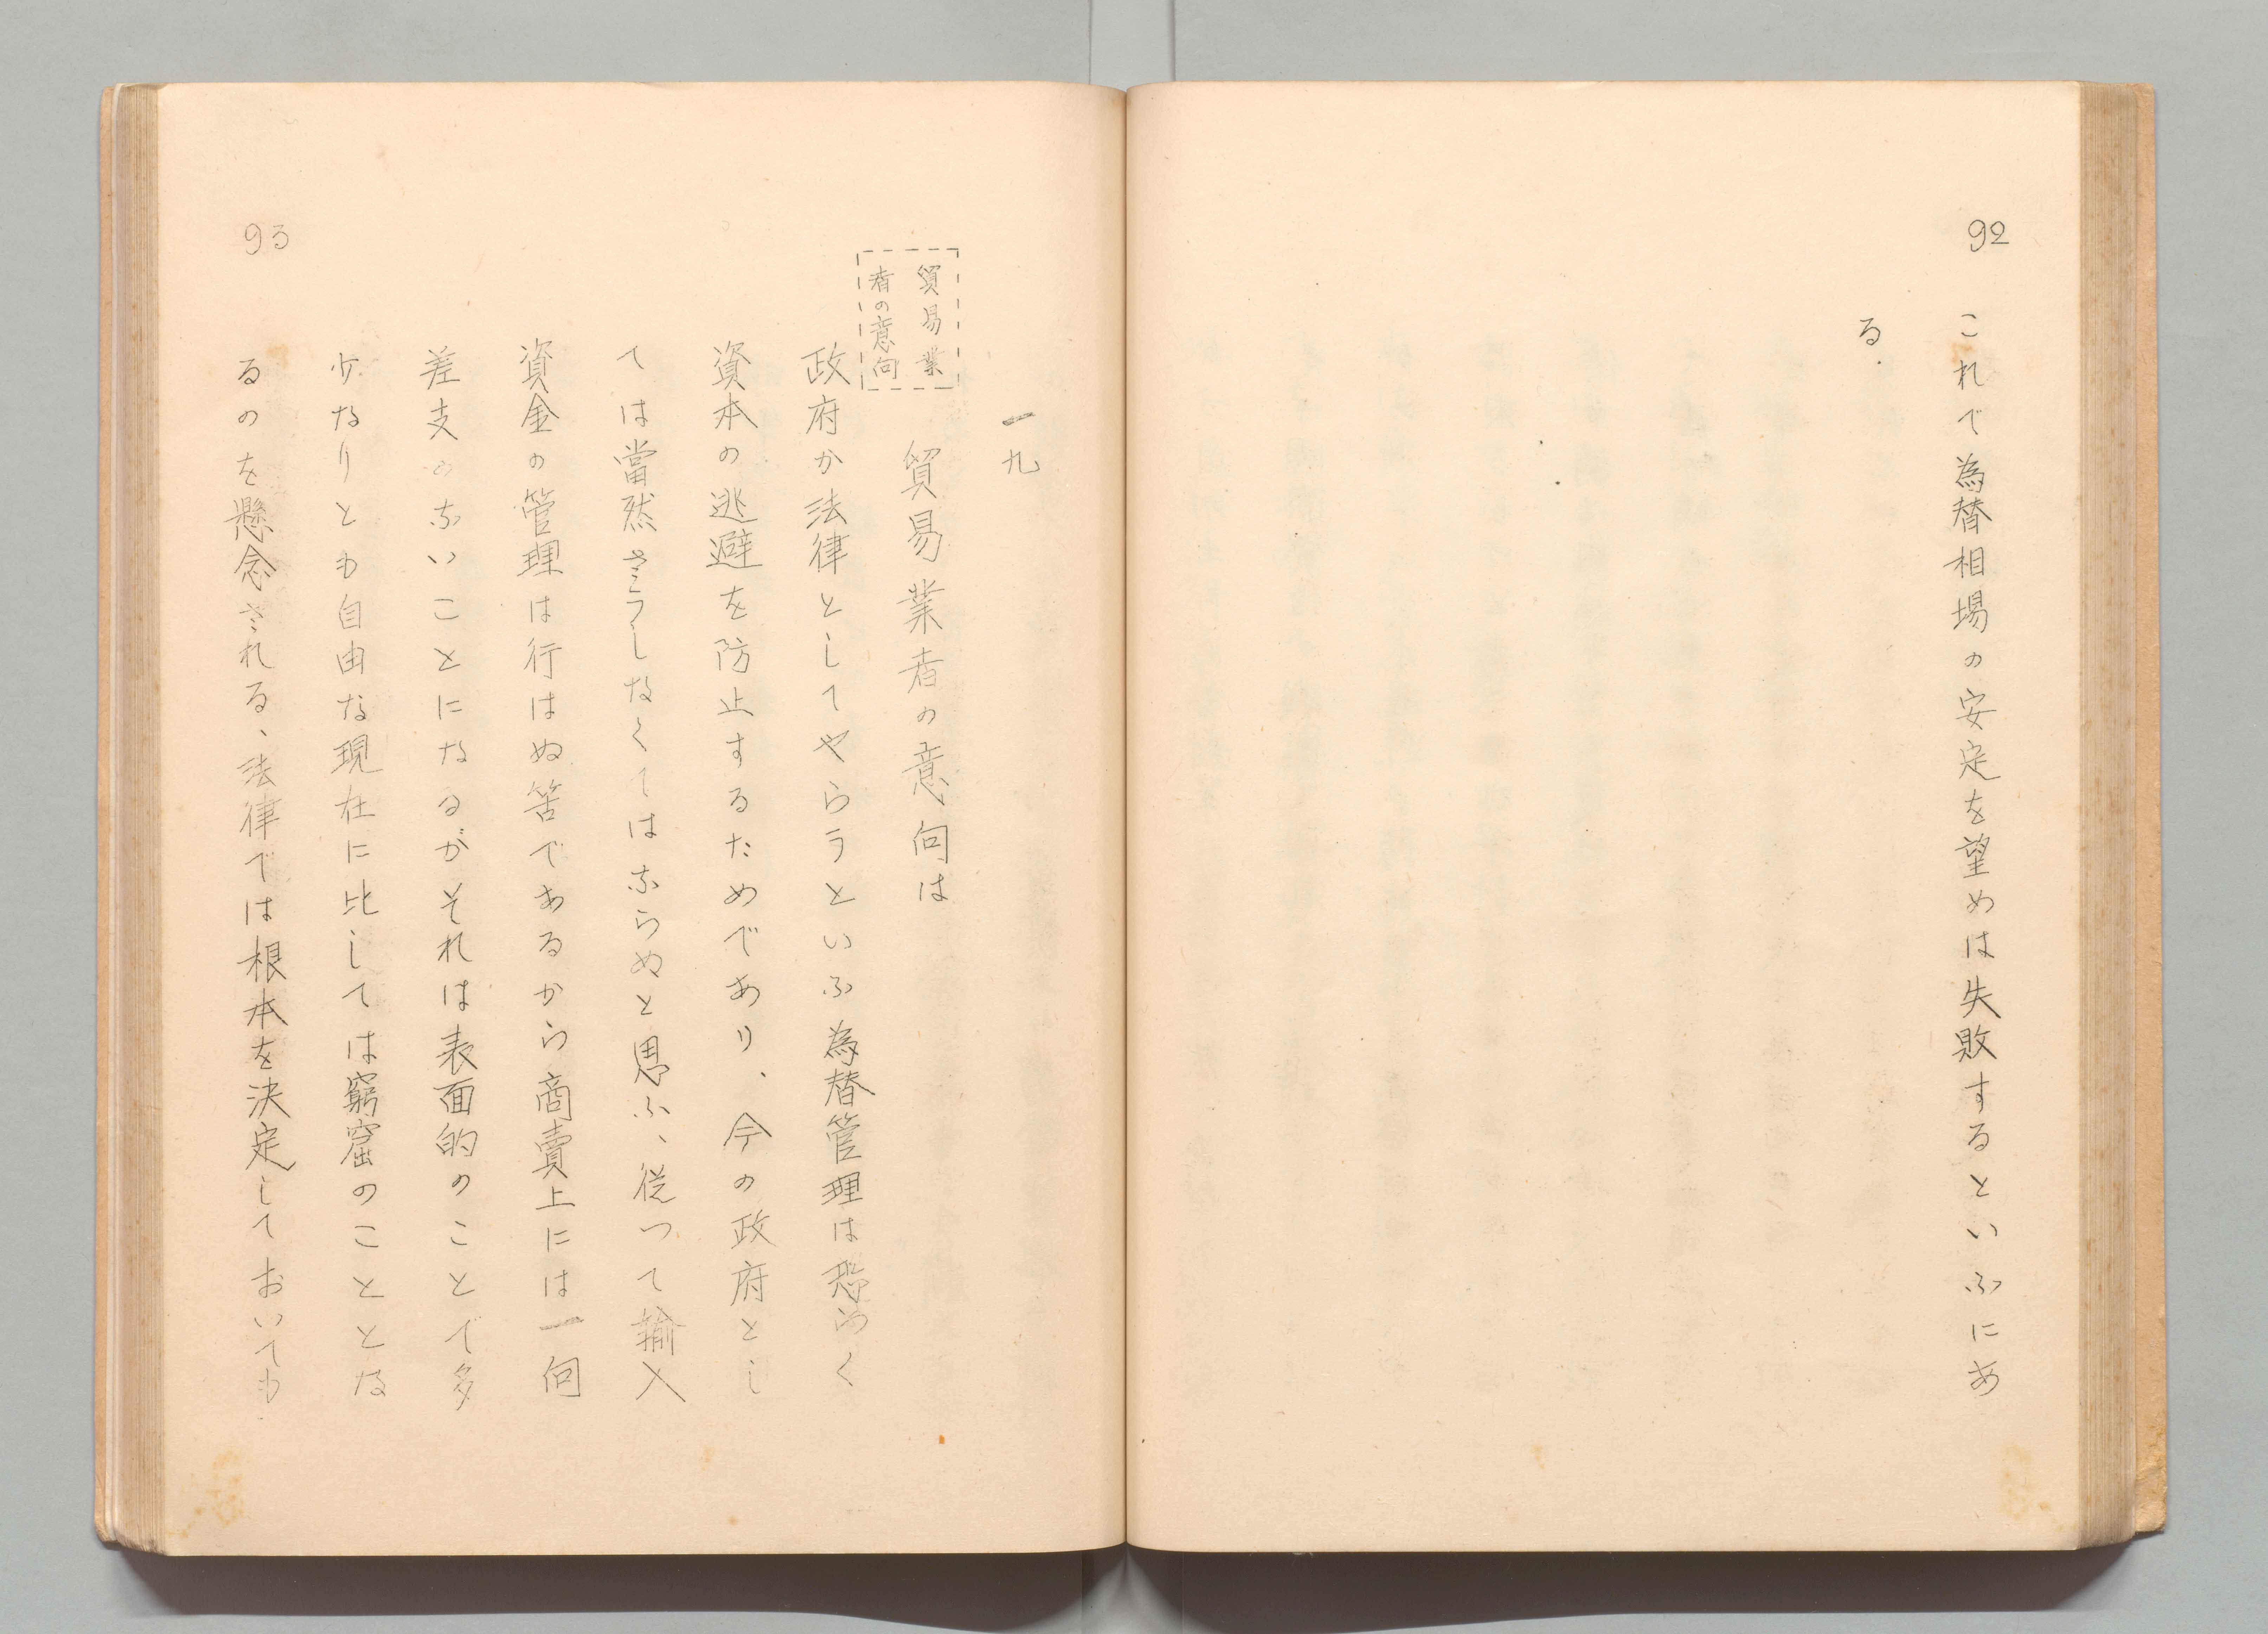 92
これで為替相場の安定を望めは失敗するといふにあ
る.
一九
貿易業
者の意向
貿易業者の意向は
政府か法律としてやらうといふ為替管理は恐らく
資本の逃避を防止するためであり、今の政府とし
ては當然さうしなくてはならぬと思ふ、従つて輸入
資金の管理は行はぬ筈であるから商賣上には一向
差支のないことになるがそれは表面的のことで多
少なりとも自由な現在に比しては窮窟のこととな
るのを懸念される、法律では根本を決定しておいても
93